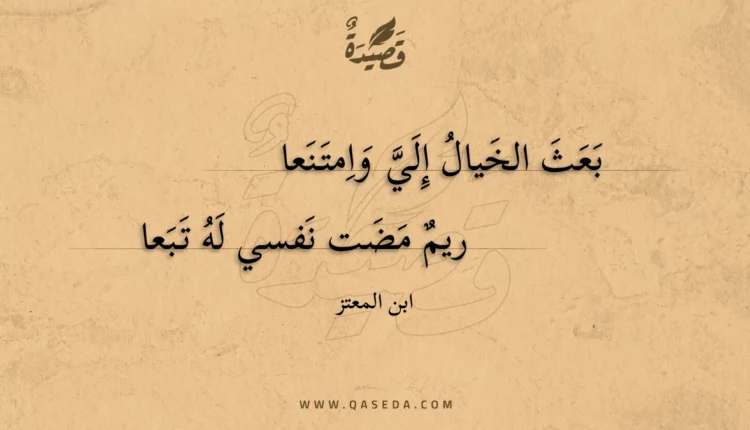 قَصِيدَةٌ
بَعَثَ الخَيالُ إِلَيَّ وَاِمتَنَعا
ريمٌ مَضَت نَفسي لَهُ تَبَعا
ابن المعتز
WWW.QASEDA.COM